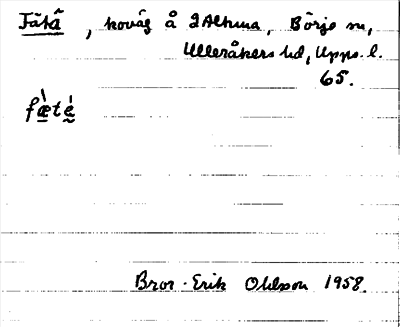 Fätå, koväg å 2 Altuna, Börje sn,
Ulleråkers hd, Upps. l.
65.
fæ̀té
Bror-Erik Ohlsson 1958.